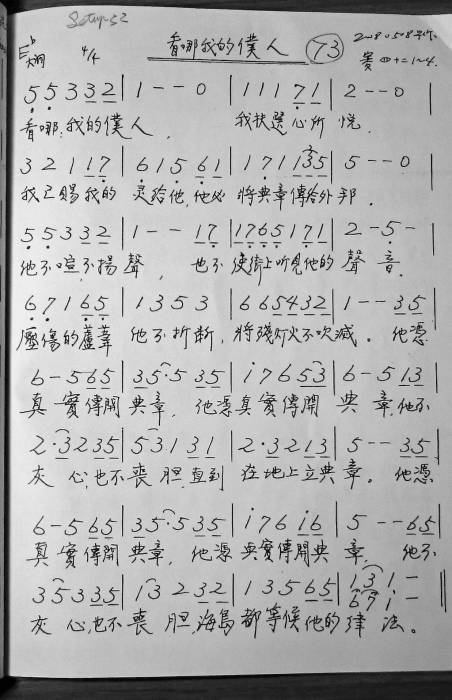 Setup 52
看哪我的僕人 73
E♭大調 4/4 2008.05.08
賽四十二1~4.
5 5 3 3 2 | 1 - - 0 | 1 1 1 7 1 | 2 - - 0 |
看哪,我的僕人, 我扶 心所悅.
3 2 1 1 7 | 6 1 5 6 1 | 1 7 1 1 3 5 | 5 - - 0
我已賜我的灵給他,他必將典章傳給外邦.
5 5 3 3 2 | 1 - - 1 7 | 1 7 6 5 1 7 1 | 2 - 5 -
他不喧不揚聲, 也不使街上听見他的聲音.
6 7 1 6 5 | 1 3 5 3 | 6 6 5 4 3 2 | 1 - - 3 5
壓傷的蘆葦他不折斷,將殘灯火不吹滅。他憑
6 - 5 6 5 | 3 5 · 5 3 5 | i 7 6 5 3 | 6 - 5 1 3
真實傳開典章,他憑真實傳開典章,他不
2 · 3 2 3 5 | 5 3 1 3 1 | 2 · 3 2 1 3 | 5 - - 3 5
灰心也不喪胆,直到在地上立典章。他憑
6 - 5 6 5 | 3 5 · 5 3 5 | i 7 6 i 6 | 5 - - 6 5
真實傳開典章,他憑真實傳開典章,他不
3 5 3 3 5 | 1 3 2 3 2 | 1 3 5 6 5 | i 3 i -
6 7 i -
灰心,也不喪胆,海島都等候他的律法。